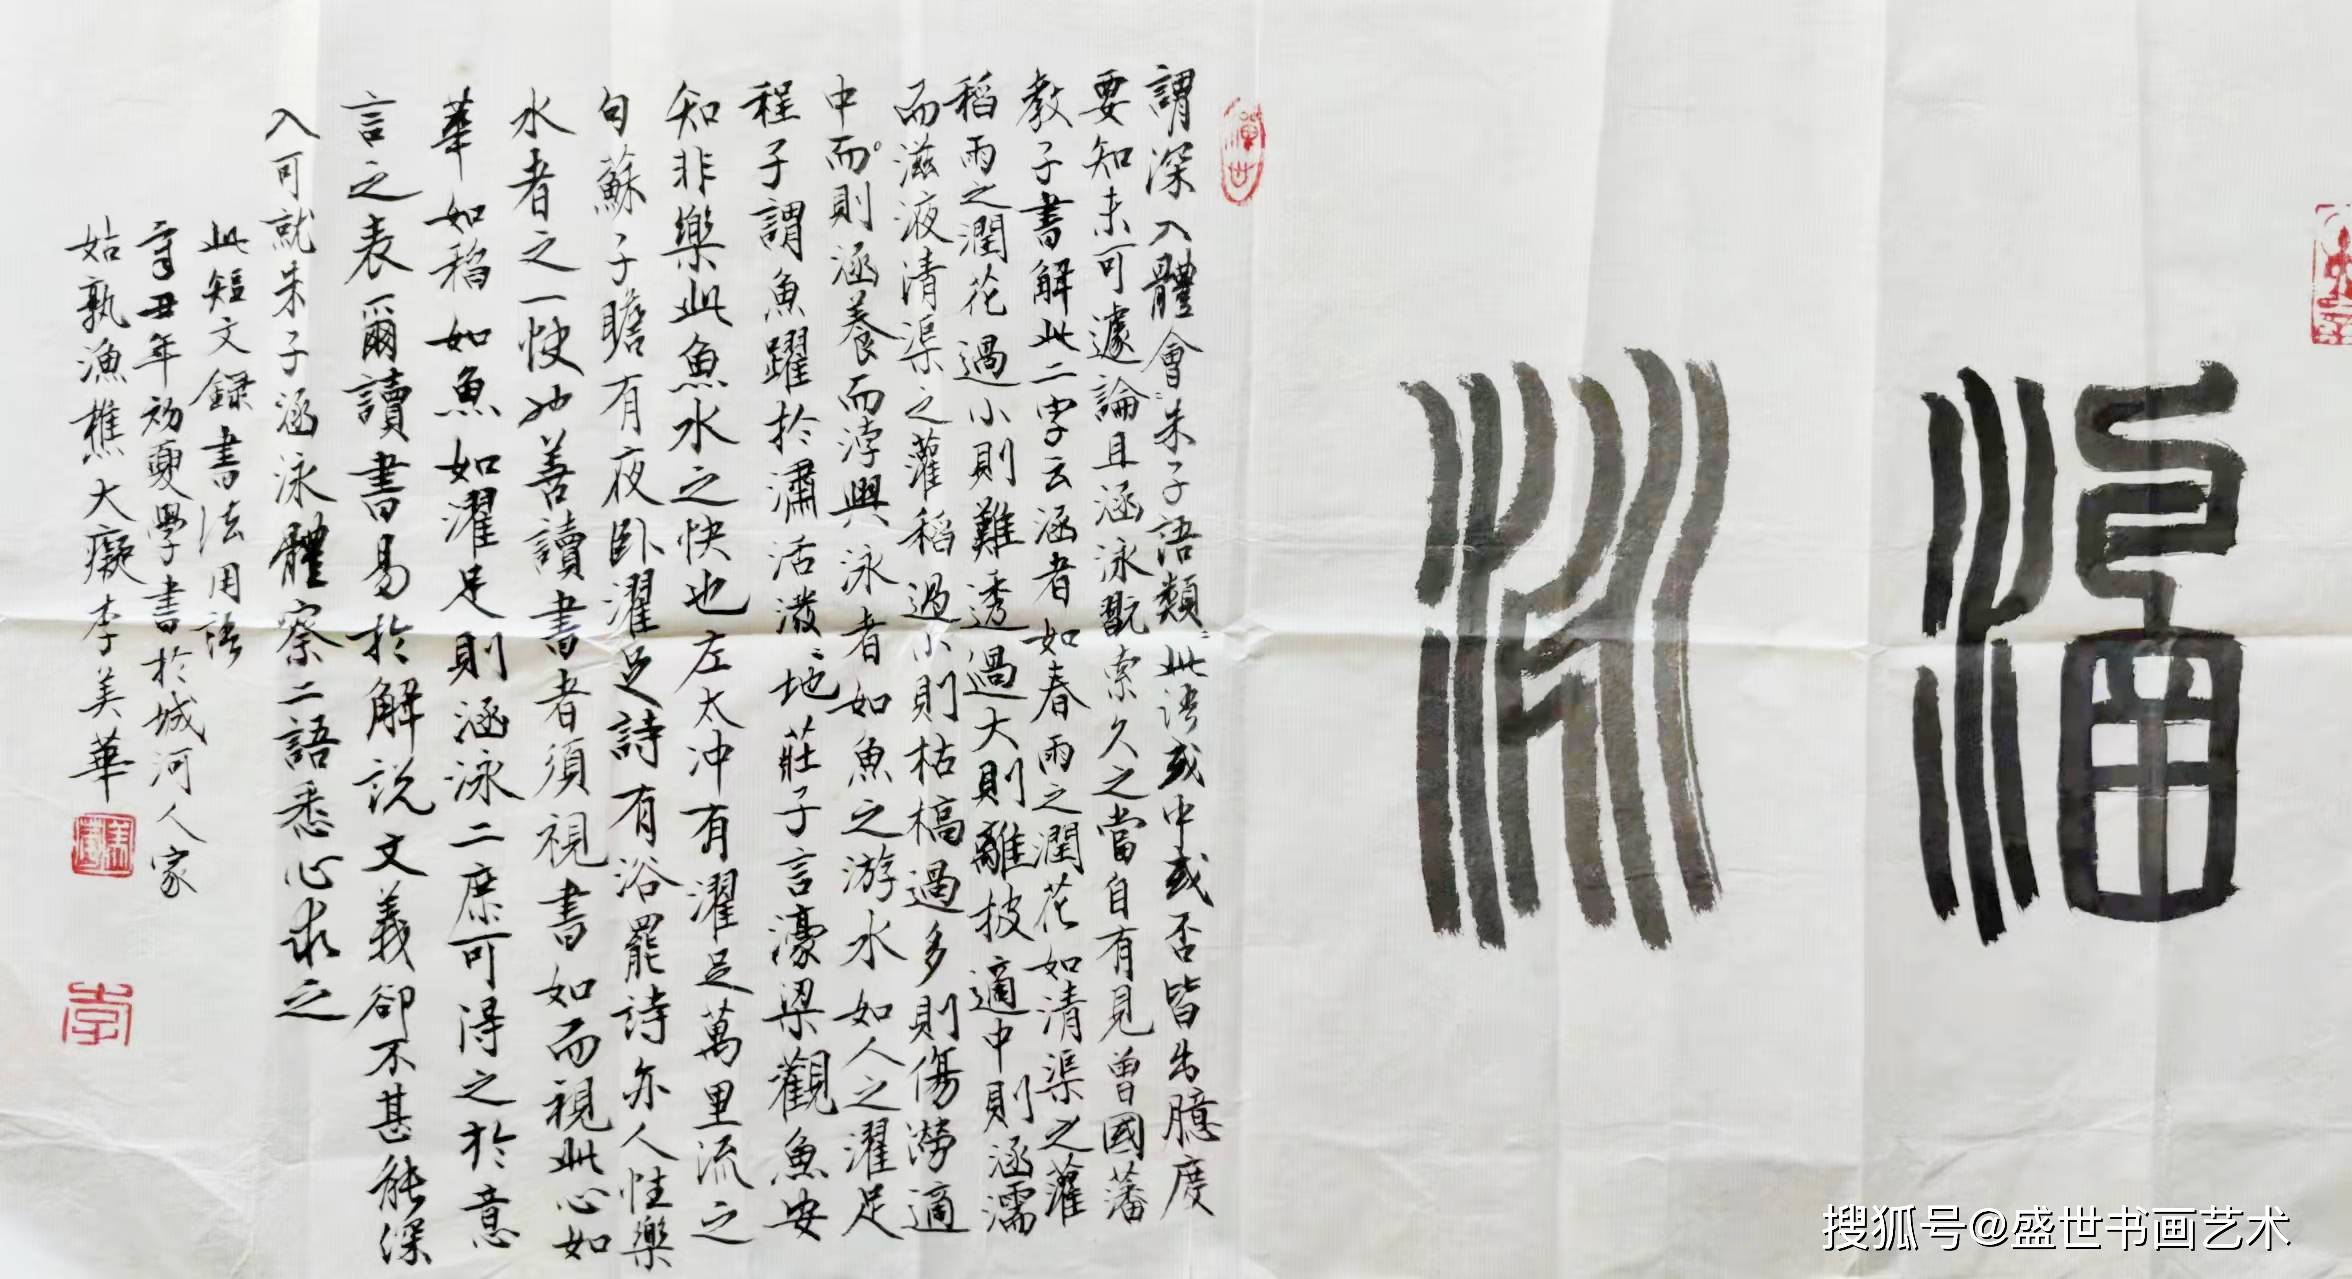 涵
泳
謂深入體會朱子語類此語或中或否皆出臆度
要知未可遽論且涵泳翫索久之當自有見曾國藩
教子書解此二字云涵者如春雨之潤花如清渠之灌
稻雨之潤花過小則難透過大則離披適中則涵濡
而滋液清渠之灌稻過小則枯槁過多則傷澇適
中而則涵養而浡興泳者如魚之游水如人之濯足
程子謂魚躍於淵活潑〻地莊子言濠梁觀魚安
知非樂此魚水之快也左太冲有濯足萬里流之
句蘇子瞻有夜卧濯足詩有浴罷詩亦人性樂
水者之一快也善讀書者須視書如而視此心如
華如稻如魚如濯足則涵泳二庶可得之於意
言之表爾讀書易於解說文義卻不甚能深
入可就朱子涵泳體察二語悉心求之
此短文録書法用語
辛丑年初夏學書於城河人家
姑孰漁樵大癡李美華
美華
李
搜狐号@盛世书画艺术